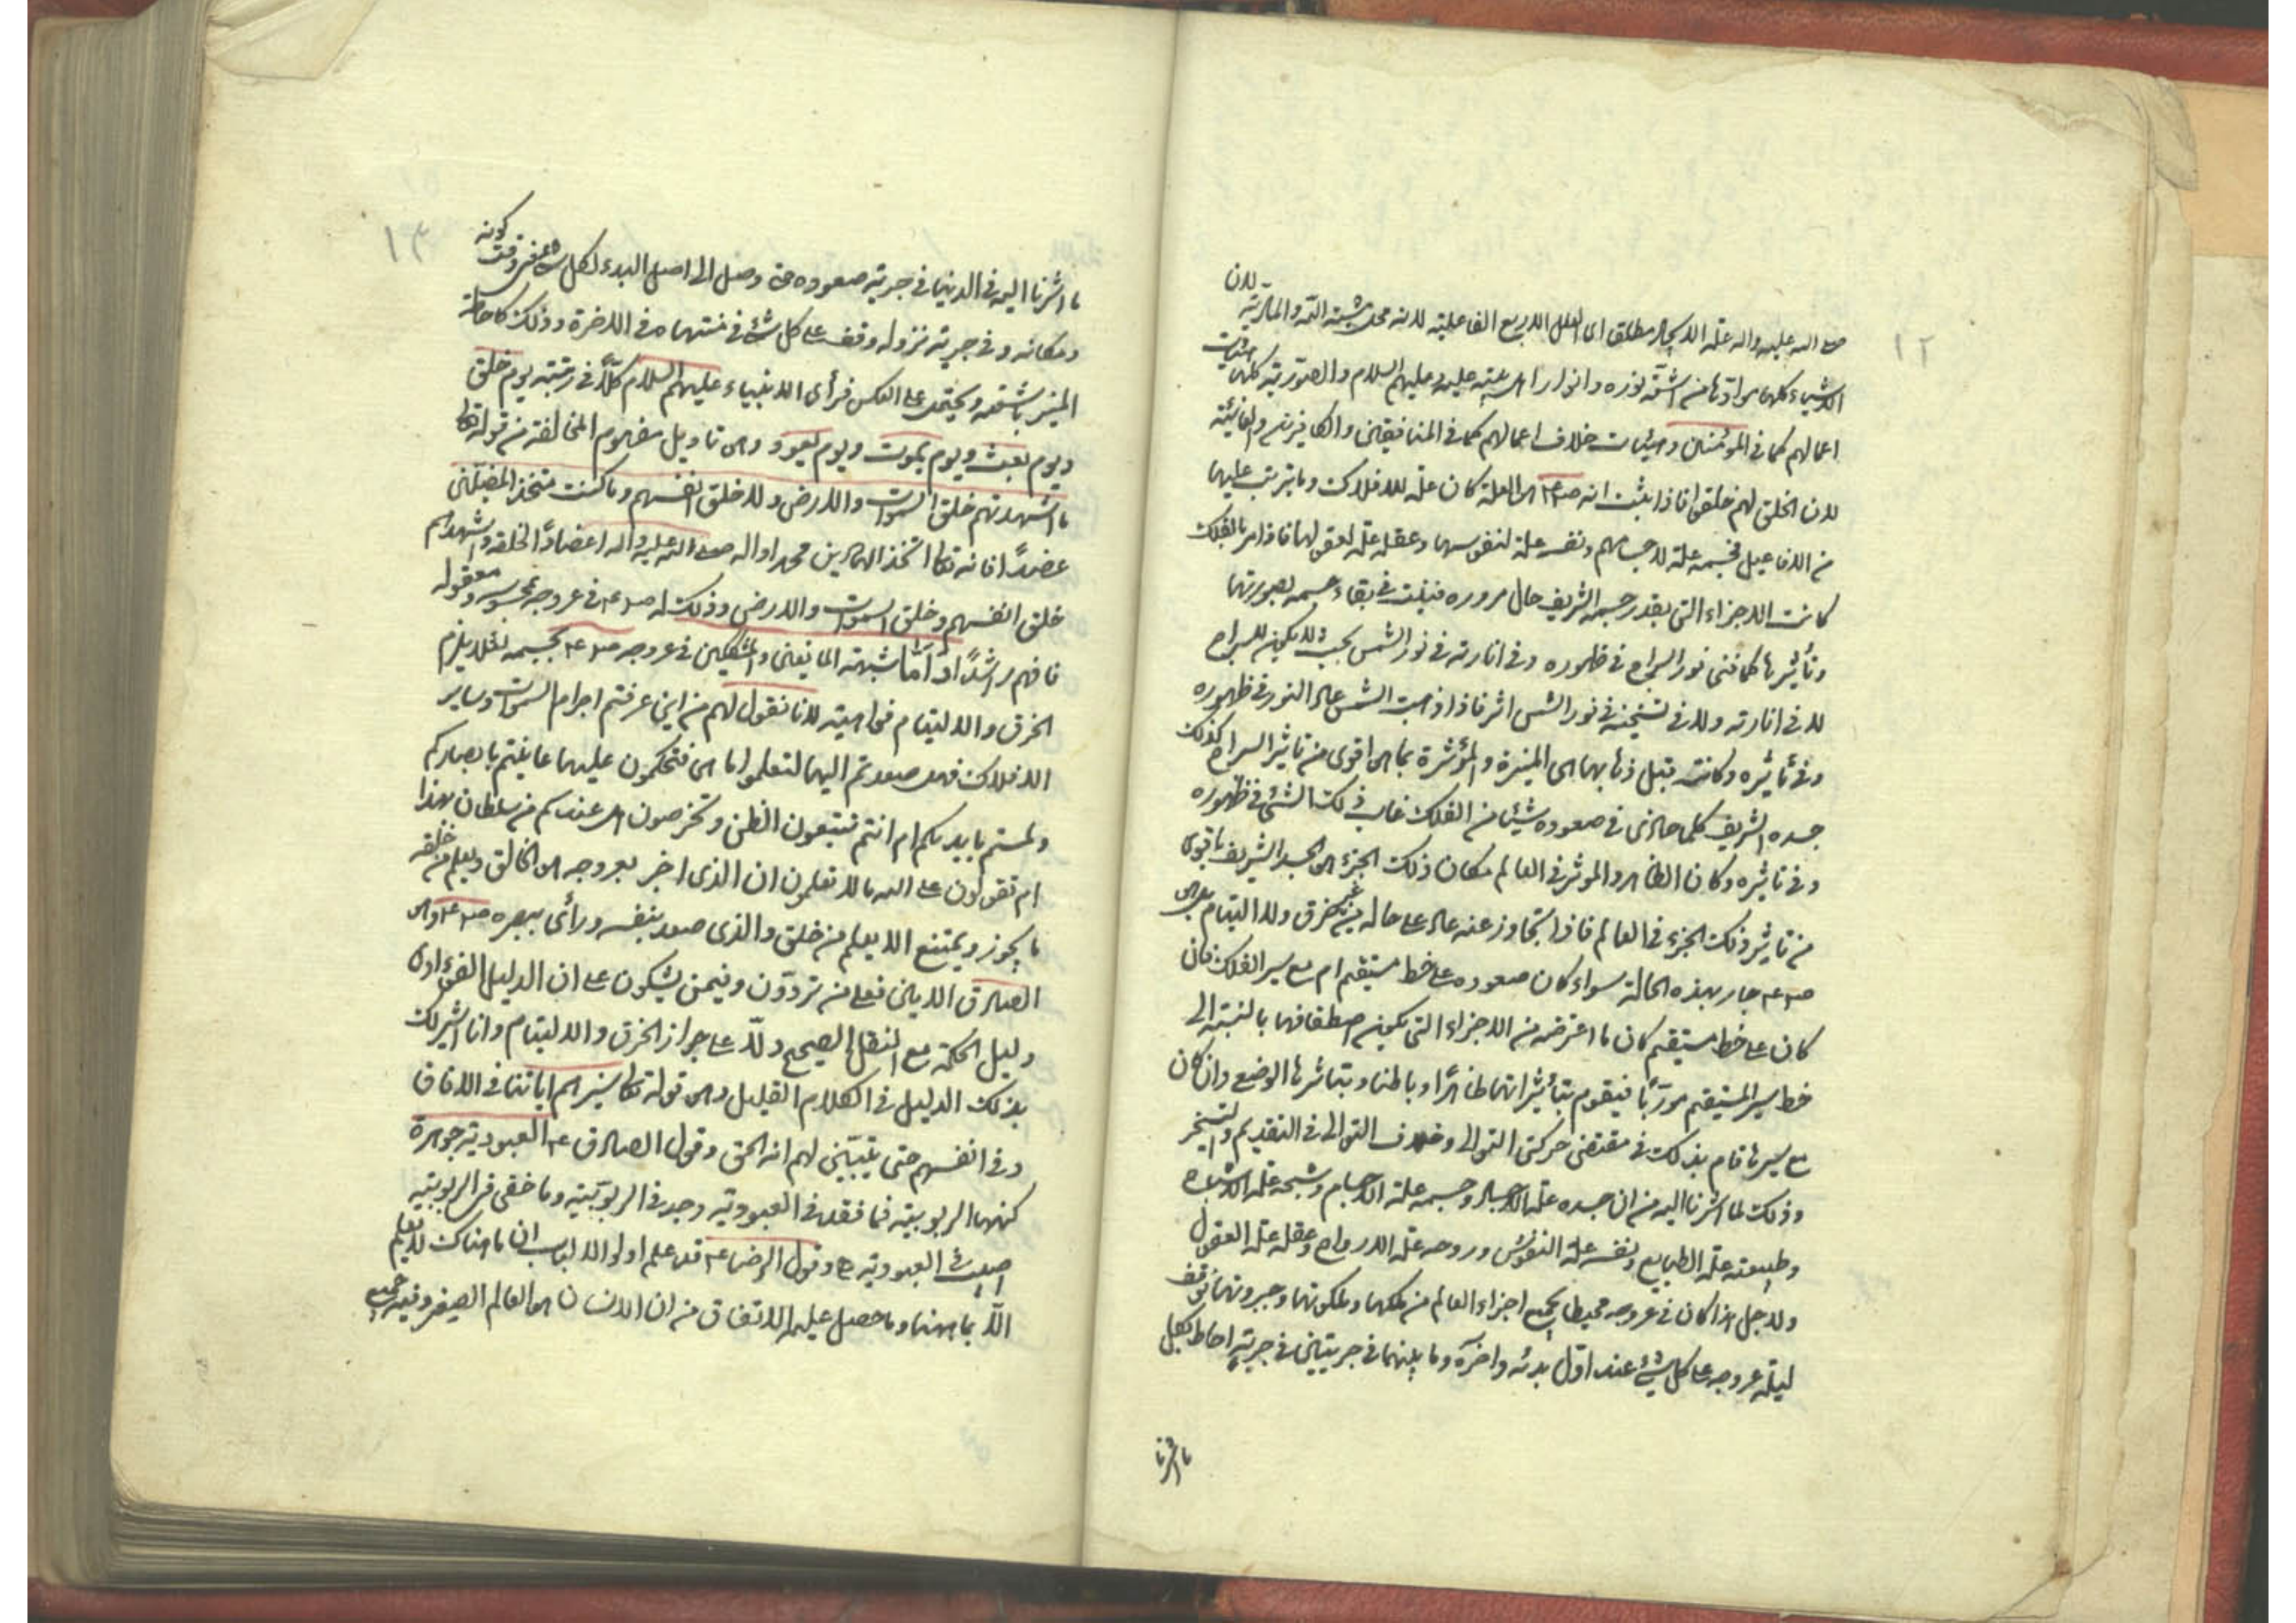 ١٢
صلى الله عليه واله علة الايجاد مطلق اى العلل الاربع الفاعلية لانه محل مشية الله والمادية لان
الاشياء كلها موادها من اشعة نوره وانوار اهل بيته عليه وعليهم السلام والصورية كلها هيئات
اعمالهم كما فى المؤمنين وهيئات خلاف اعمالهم كما فى المنافقين والكافرين والغائية
لان الخلق لهم خلقوا فاذا ثبت انه ص٤ هو العلة كان علة للافلاك وما يترتب عليها
من الافاعيل فجسمه علة لاجسامهم ونفسه علة لنفوسها وعقله علة لعقولها فاذا مر بالفلك
كانت الاجزاء التى بقدر جسمه الشريف حال مروره فنيت فى بقاء جسمه بصورتها
وتأثيرها كما فنى نور السراج فى ظهوره وفى انارته فى نور الشمس بحيث لا يكون للسراج
لا فى انارته ولا فى تسخينه فى نور الشمس اثر فاذا ذهبت الشمس عاد النور فى ظهوره
وفى تأثيره وكانت قبل ذهابها هى المنيرة والمؤثرة بما هو اقوى من تاثير السراج كذلك
جسده الشريف كلما حاذى فى صعوده شيئا من الفلك غاب ذلك الشئ فى ظهوره
وفى تاثيره وكان الظاهر والموثر فى العالم مكان ذلك الجزء هو الجسد الشريف باقوى
من تاثير ذلك الجزء فى العالم فاذا تجاوز عنه عاد على حاله من غير خرق ولا التيام بل هو
ص٤ جار بهذه الحالة سواء كان صعوده على خط مستقيم ام مع سير الفلك فان
كان على خط مستقيم كان ما اعترضه من الاجزاء التى يكون اصطفافها بالنسبة الى
خط سير المستقيم موربا فيقوم بتأثيراتها ظاهرا وباطنا وبتاثيرها الوضع وان كان
مع سيرها قام بذلك فى مقتضى حركتى التوالى وخلاف التوالى فى التقديم والتسخير
وذلك لما اشرنا اليه من ان جسده علة الاجساد وجسمه علة الاجسام وشبحه علة الاشباح
وطبيعته علة الطبايع ونفسه علة النفوس وروحه علة الارواح وعقله علة العقول
ولاجل هذا كان فى عروجه محيطا بجميع اجزاء العالم من ملكها وملكوتها وجبروتها فوقف
ليلة عروجه على كل شئ عند اول بدئه واخره وما بينهما فى جريتين فى جرية احاط بكل
ما اشرنا
١٣
ما اشرنا اليه فى الدنيا فى جرية صعوده حتى وصل الى اصل البدء لكل شئ فى وقت كونه
ومكانه وفى جرية نزوله وقف على كل شئ فى منتهاه فى الاخرة وذلك كاحاطة
المنير باشعته ويحتمل على العكس فرأى الانبياء عليهم السلام كلا فى رتبته يوم خلق
ويوم بعث ويوم يموت ويوم يعود وهو تاويل مفهوم المخالفة من قوله تعالى
ما اشهدتهم خلق السموات والارض ولا خلق انفسهم وما كنت متخذ المضلين
عضدا فانه تعالى اتخذ الهادين محمدا واله صلى الله عليه واله اعضادا لخلقه واشهدهم
خلق انفسهم وخلق السموات والارض وذلك له ص٤ فى عروجه محسوسه ومعقوله
فافهم راشدا واما شبهة المانعين والمشككين فى عروجه ص٤ بجسمه لئلا يلزم
الخرق والالتيام فواهية لانا نقول لهم من اين عرفتم اجرام السموات وساير
الافلاك فهل صعدتم اليها لتعلموا ما هى فتحكمون عليها عاينتم بابصاركم
ولمستم بايديكم ام انتم تتبعون الظن وتخرصون هل عندكم من سلطان بهذا
ام تقولون على الله ما لا تعلمون ان الذى اخبر بعروجه هو الخالق ويعلم من خلقه
ما يجوز ويمتنع الا يعلم من خلق والذى صعد بنفسه ورأى ببصره ص٤ وهو
الصادق الامين فعلى من تردون وفيمن يشكون على ان الدليل الفؤادى
دليل الحكمة مع النقل الصحيح دلا على جواز الخرق والالتيام وانا اشير لك
بذلك الدليل فى الكلام القليل وهو قوله تعالى سنريهم اياتنا فى الافاق
وفى انفسهم حتى يتبين لهم انه الحق وقول الصادق ٤ العبودية جوهرة
كنهها الربوبية فما فقد فى العبودية وجد فى الربوبية وما خفى فى الربوبية
اصيب فى العبودية وقول الرضا ٤ قد علم اولوا الالباب ان ما هناك لا يعلم
الا بما هيهنا وما حصل عليه الاتفاق من ان الانسان هو العالم الصغير وفيه جميع